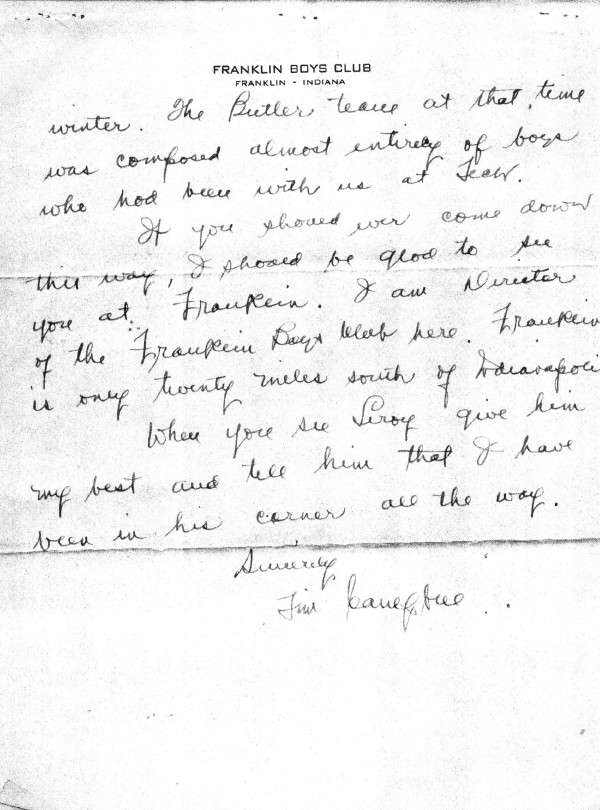 FRANKLIN BOYS CLUB
FRANKLIN - INDIANA
winter. The Butler team at that time
was composed almost entirely of boys
who had been with us at Tech.
If you should ever come down
this way, I should be glad to see
you at Franklin. I am Director
of the Franklin Boys Club here. Franklin
is only twenty miles south of Indianapolis
When you see Leroy give him
my best and tell him that I have
been in his corner all the way.
Sincerely